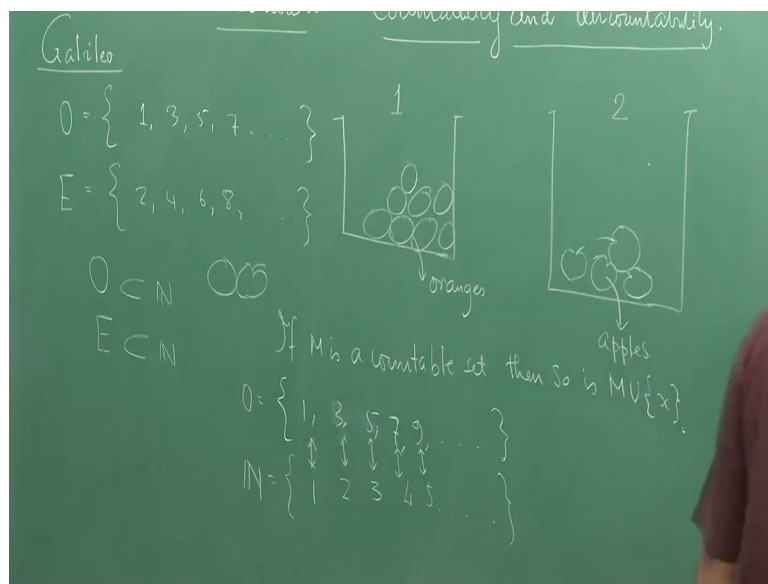 Countability and Uncountability.
Galileo
O = { 1, 3, 5, 7 . . . }
E = { 2, 4, 6, 8, . . . }
O ⊂ ℕ
E ⊂ ℕ
1
oranges
2
apples
If M is a countable set then so is M∪{x}.
O = { 1, 3, 5, 7, 9, . . . . }
ℕ = { 1 2 3 4 5 . . . . }